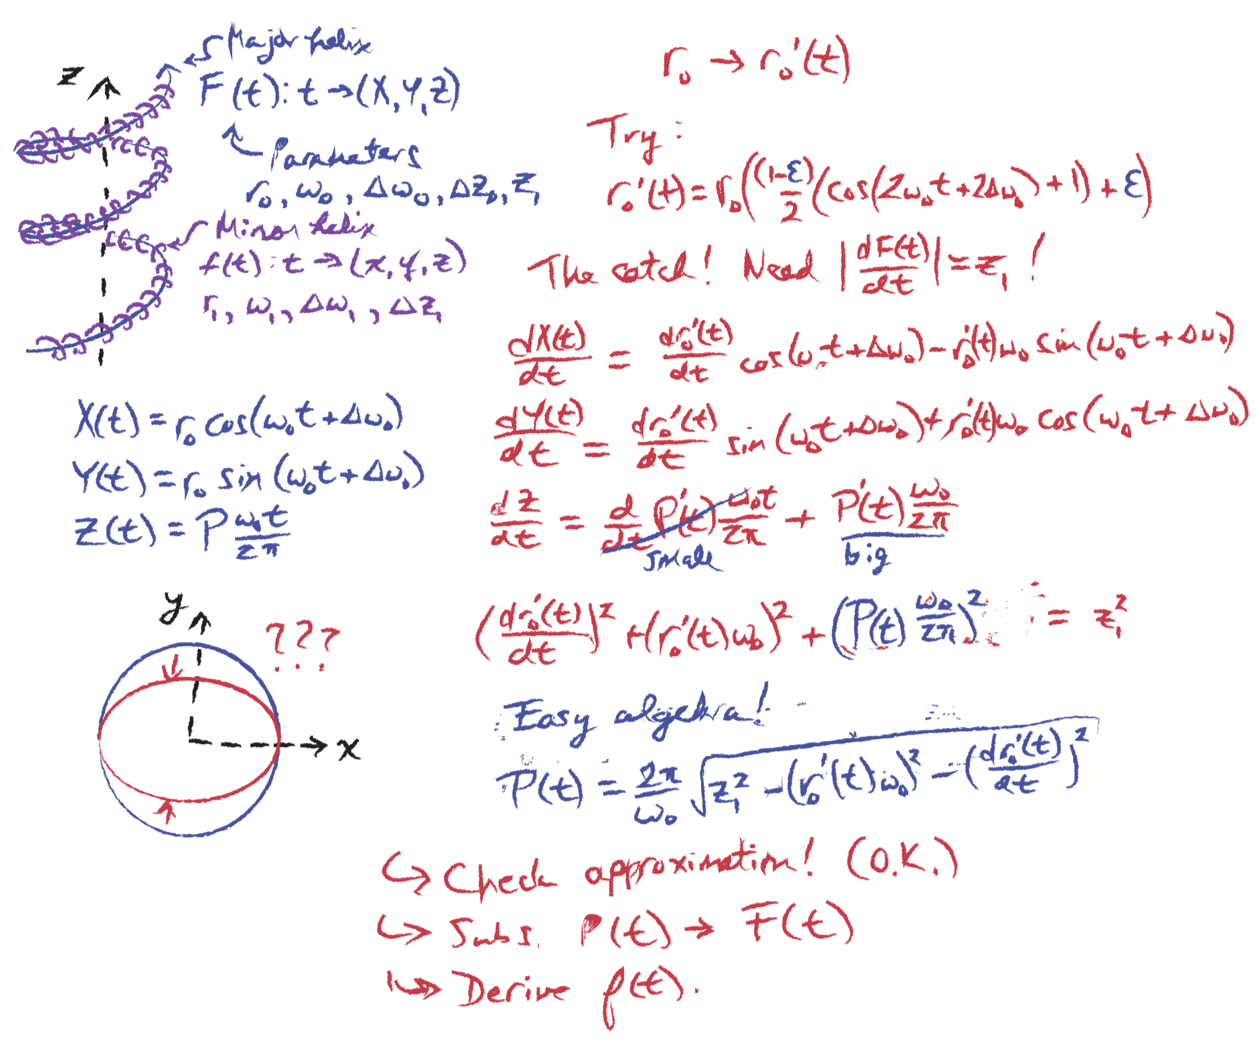 Major helix
Z
F(t): t → (X, Y, Z)
Parameters
r₀, ω₀, Δω₀, ΔZ₀, Z₁
Minor helix
f(t): t → (x, y, z)
r₁, ω₁, Δω₁, ΔZ₁
X(t) = r₀ cos(ω₀t + Δω₀)
Y(t) = r₀ sin(ω₀t + Δω₀)
Z(t) = P ω₀t/2π
y
???
x
r₀ → r₀'(t)
Try:
r₀'(t) = r₀((1-ε)/2 (cos(2ω₀t + 2Δω₀) + 1) + ε)
The catch! Need |dF(t)/dt| = z₁!
dX(t)/dt = dr₀'(t)/dt cos(ω₀t + Δω₀) - r₀'(t)ω₀ sin(ω₀t + Δω₀)
dY(t)/dt = dr₀'(t)/dt sin(ω₀t + Δω₀) + r₀'(t)ω₀ cos(ω₀t + Δω₀)
dZ/dt = d/dt P'(t) ω₀t/2π + P'(t) ω₀/2π
small
big
(dr₀'(t)/dt)² + (r₀'(t)ω₀)² + (P(t) ω₀/2π)² = z₁²
Easy algebra!
P(t) = 2π/ω₀ √(z₁² - (r₀'(t)ω₀)² - (dr₀'(t)/dt)²)
↳ Check approximation! (O.K.)
↳ Subs. P(t) → F(t)
↳ Derive f(t).